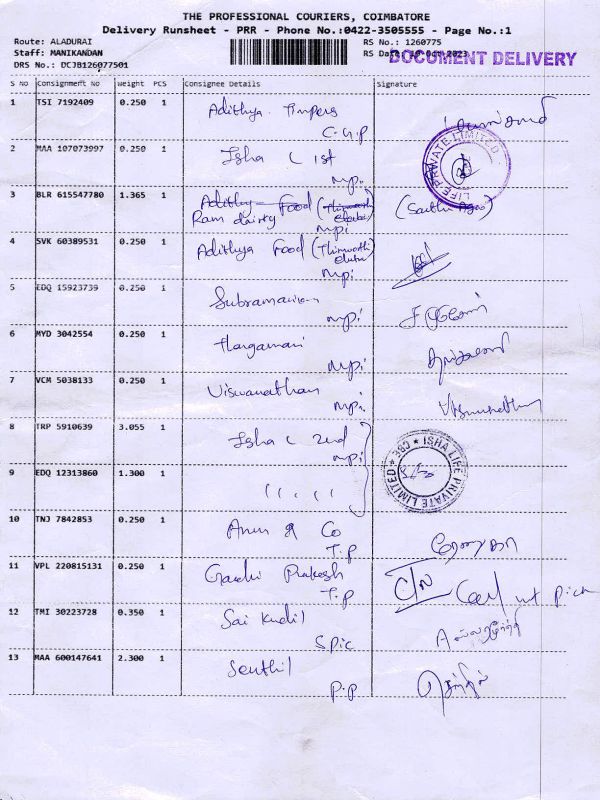 THE PROFESSIONAL COURIERS, COIMBATORE
Delivery Runsheet - PRR - Phone No.:0422-3505555 - Page No.:1
Route: ALADURAI
RS No.: 1260775
Staff: MANIKANDAN
RS Date: 10-Oct-2023
DOCUMENT DELIVERY
DRS No.: DCJB126077501
S NO Consignment No Weight PCS Consignee Details Signature
1 TSI 7192409 0.250 1 Adithya
C.G.P
2 MAA 107073997 0.250 1 Isha L 1st
mpi
LIFE PRIVATE LIMITED
3 BLR 615547780 1.365 1 Adithy Food
Ram dairty
mpi
4 SVK 60389531 0.250 1 Adithya Food
mpi
5 EDQ 15923739 0.250 1 Subramanian
mpi
6 MYD 3042554 0.250 1
mpi
7 VCM 5038133 0.250 1 Viswanathan Viswanathan
mpi
8 TRP 5910639 3.055 1 Isha L 2nd
mpi
360 ★ ISHA LIFE PRIVATE LIMITED ★
9 EDQ 12313860 1.300 1 " " "
10 TNJ 7842853 0.250 1 Arun & Co
T.P
11 VPL 220815131 0.250 1 Gandhi Prakash C/N Call not pick
T.P
12 TMI 30223728 0.350 1 Sai Kudil
Spic
13 MAA 600147641 2.300 1 Senthil செந்தில்
P.P